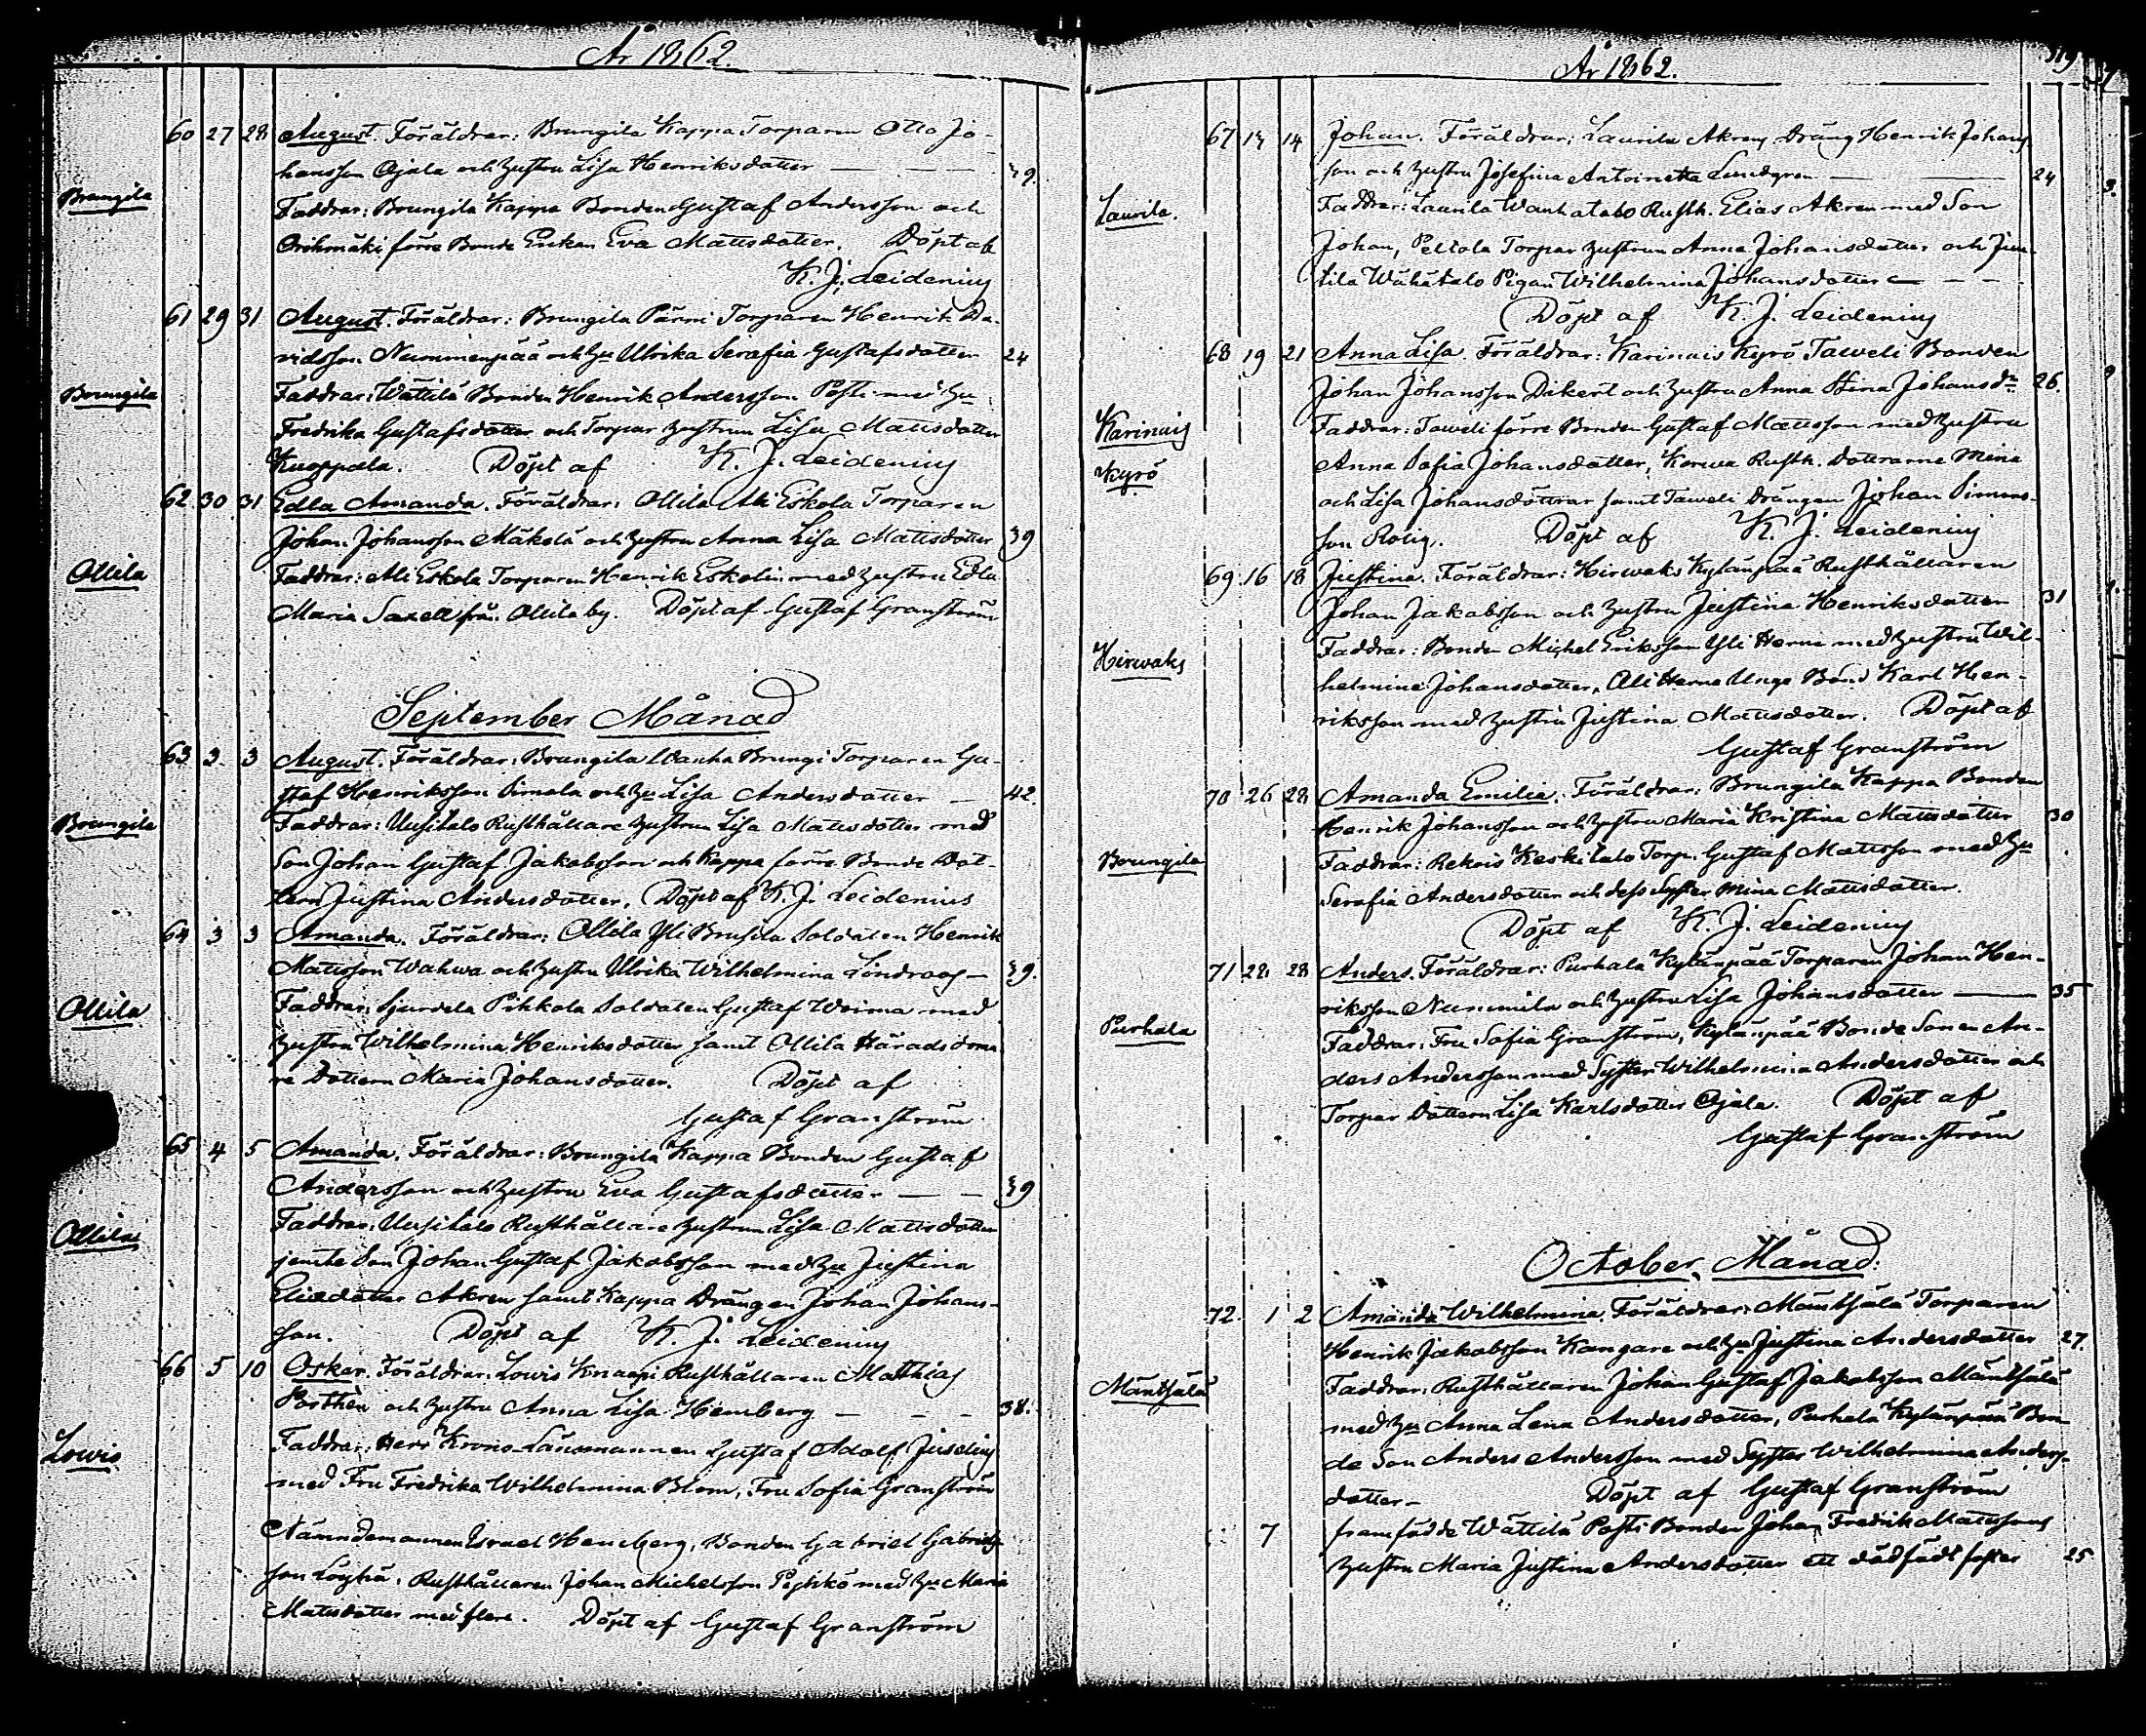 År 1862.
60 27 28 August. Föräldrar: Brungila Kappa Torparen Otto Jo-
hansson Ojala och hustru Lisa Henriksdotter — — — 39.
Brungila
Faddrar: Brungila Kappa Bonden Gustaf Andersson och
Orihmäki förre Bonde Enkan Eva Mattsdotter. Döpt af
K. J. Leidenius
61 29 31 August. Föräldrar: Brungila Pärri Torparen Henrik Da-
vidsson Nummenpää och hu Ulrika Serafia Gustafsdotter 24
Brungila
Faddrar: Wättilä Bonden Henrik Andersson Posti med hu
Fredrika Gustafsdotter och Torpar hustrun Lisa Mattsdotter
Knoppala. Döpt af K. J. Leidenius
62. 30. 31 Edla Amanda. Föräldrar: Ollila Ali Eskola Torparen
Johan Johansson Mäkelä och hustru Anna Lisa Mattsdotter 39
Ollila
Faddrar: Ali Eskola Torparen Henrik Eskolin med hustru Edla
Maria Saxell från Ollila by. Döpt af Gustaf Granström
September Månad
63 3 3 August. Föräldrar: Brungila Wanha Brungi Torparen Gu-
staf Henriksson Simola och hu Lisa Andersdotter — 42.
Brungila
Faddrar: Uusitalo Rusthållare hustrun Lisa Mattsdotter med
Son Johan Gustaf Jakobsson och Kappa förre Bonde Dot-
tern Justina Andersdotter. Döpt af K. J. Leidenius
64 3 3 Amanda. Föräldrar: Ollila Yli Brusila Soldaten Henrik
Mattsson Wahwa och hustru Ulrika Wilhelmina Lindroos — 39.
Ollila
Faddrar: Sjurvala Pihkola Soldaten Gustaf Woima med
hustru Wilhelmina Henriksdotter samt Ollila Häradsdoma-
re Dottern Maria Johansdotter. Döpt af
Gustaf Granström
65 4 5 Amanda. Föräldrar: Brungila Kappa Bonden Gustaf
Andersson och hustru Eva Gustafsdotter — — 39
Ollila
Faddrar: Uusitalo Rusthållare hustrun Lisa Mattsdotter
jemte Son Johan Gustaf Jakobsson med hu Justina
Eliaedotter Akren samt Kappa Drängen Johan Johans-
son. Döpt af K. J. Leidenius
66 5 10 Oskar. Föräldrar: Lowis Knaapi Rusthållaren Mathias
Porthén och hustru Anna Lisa Hemberg — — — 38.
Lowis
Faddrar: Herr Krono Länsmannen Gustaf Adolf Juselius
med Fru Fredrika Wilhelmina Blom, Fru Sofia Granström
Nämndemannen Israel Hemberg, Bonden Gabriel Gabriels-
son Löytä, Rusthållaren Johan Michelsson med hu Maria
Mattsdotter med flere. Döpt af Gustaf Granström
År 1862.
319
67 13 14 Johan. Föräldrar: Laurila Akrens Dräng Henrik Johans-
son och hustru Josefina Antoinetta Lundgren — — 24
Laurila.
Faddrar: Laurila Wanhatalo Rusth. Elias Akren med Son
Johan, Peltola Torpar hustrun Anna Johansdotter och Jun-
tila Wähätalo Pigan Wilhelmina Johansdotter — — —
Döpt af K. J. Leidenius
68 19 21 Anna Lisa. Föräldrar: Karinais Kyrö Taweli Bonden
Johan Johansson Dikert och hustru Anna Stina Johansdr 26.
Karinais
Kyrö
Faddrar: Taweli förre Bonden Gustaf Mattsson med hustru
Anna Sofia Johansdotter, Korwa Rusth. Dottrarne Mina
och Lisa Johansdöttrar samt Taweli Drängen Johan Simons-
son Rolig. Döpt af K. J. Leidenius
69 16 18 Justina. Föräldrar: Hirwaks Kylänpää Rusthållaren
Johan Jakobsson och hustru Justina Henriksdotter 31
Hirwaks
Faddrar: Bonden Michel Eriksson Yli Herna med hustru Wil-
helmina Johansdotter, Ali Herna Unge Bond Karl Hen-
riksson med hustru Justina Mattsdotter. Döpt af
Gustaf Granström
70 26 28 Amanda Emilia. Föräldrar: Brungila Kappa Bonden
Henrik Johansson och hustru Maria Kristina Mattsdotter 30
Brungila
Faddrar: Rekois Keskitalo Torp. Gustaf Mattsson med hu
Serafia Andersdotter och dess Syster Mina Mattsdotter.
Döpt af K. J. Leidenius
71 28 28 Anders. Föräldrar: Purhala Kylänpää Torparen Johan Hen-
riksson Nummila och hustru Lisa Johansdotter — 35
Purhala
Faddrar: Fru Sofia Granström, Kylänpää Bonde Sonen An-
ders Andersson med Syster Wilhelmina Andersdotter och
Torpar Dottern Lisa Karlsdotter Ojala. Döpt af
Gustaf Granström
October Månad.
72. 1 2 Amanda Wilhelmina. Föräldrar: Mäntsälä Torparen
Henrik Jakobsson Kangare och hu Justina Andersdotter 27.
Mäntsälä
Faddrar: Rusthållaren Johan Gustaf Jakobsson Mäntsälä
med hu Anna Lena Andersdotter, Purhala Kylänpää Bon-
de Son Anders Andersson med Syster Wilhelmina Anders-
dotter — Döpt af Gustaf Granström
7 framfödde Wättilä Posti Bonden Johan Fredrik Mattssons
hustru Maria Justina Andersdotter ett dödfödt foster 25